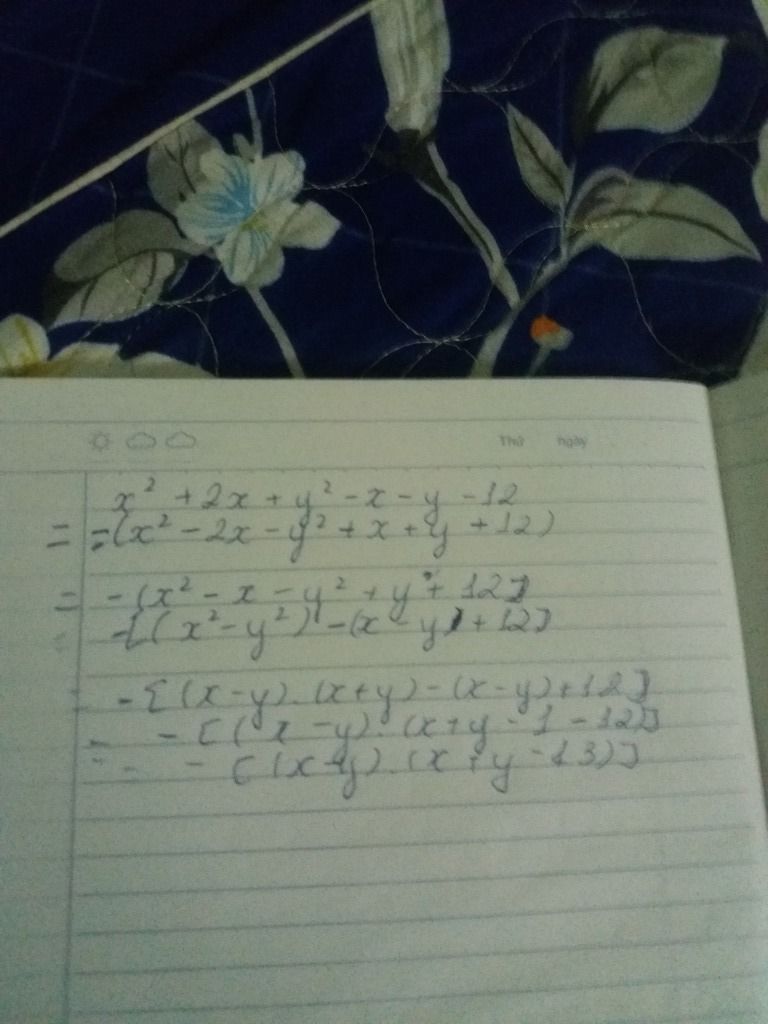 Thứ ngày
x² + 2x + y² - x - y - 12
= = (x² - 2x - y² + x + y + 12)
= - (x² - x - y² + y + 12]
-[(x² - y²) - (x - y) + 12]
- [(x-y).(x+y) - (x-y) + 12]
= - [(x - y).(x + y - 1 - 12)]
= - [(x-y).(x + y - 13)]